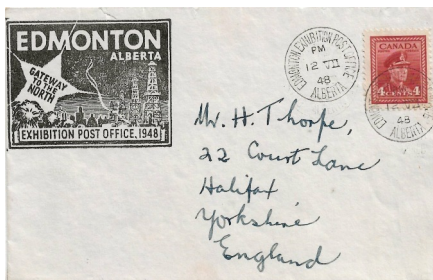 EDMONTON
ALBERTA
GATEWAY
TO THE
NORTH
EXHIBITION POST OFFICE, 1948
EDMONTON EXHIBITION POST OFFICE
PM
12 VII
48
ALBERTA
CANADA
4 4
48
ALBERTA
Mr. H. Thorpe,
22 Court Lane
Halifax
Yorkshire
England